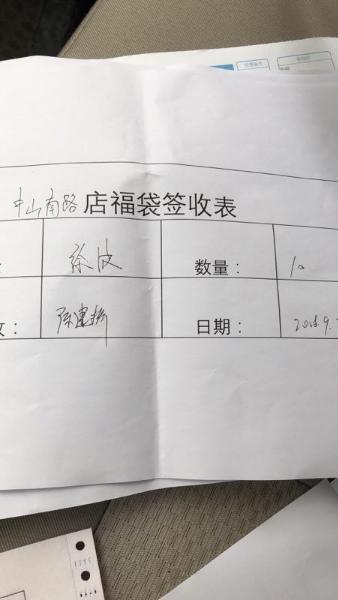 中山南路店福袋签收表
徐波 数量： 10
陈建新 日期： 2018.9.